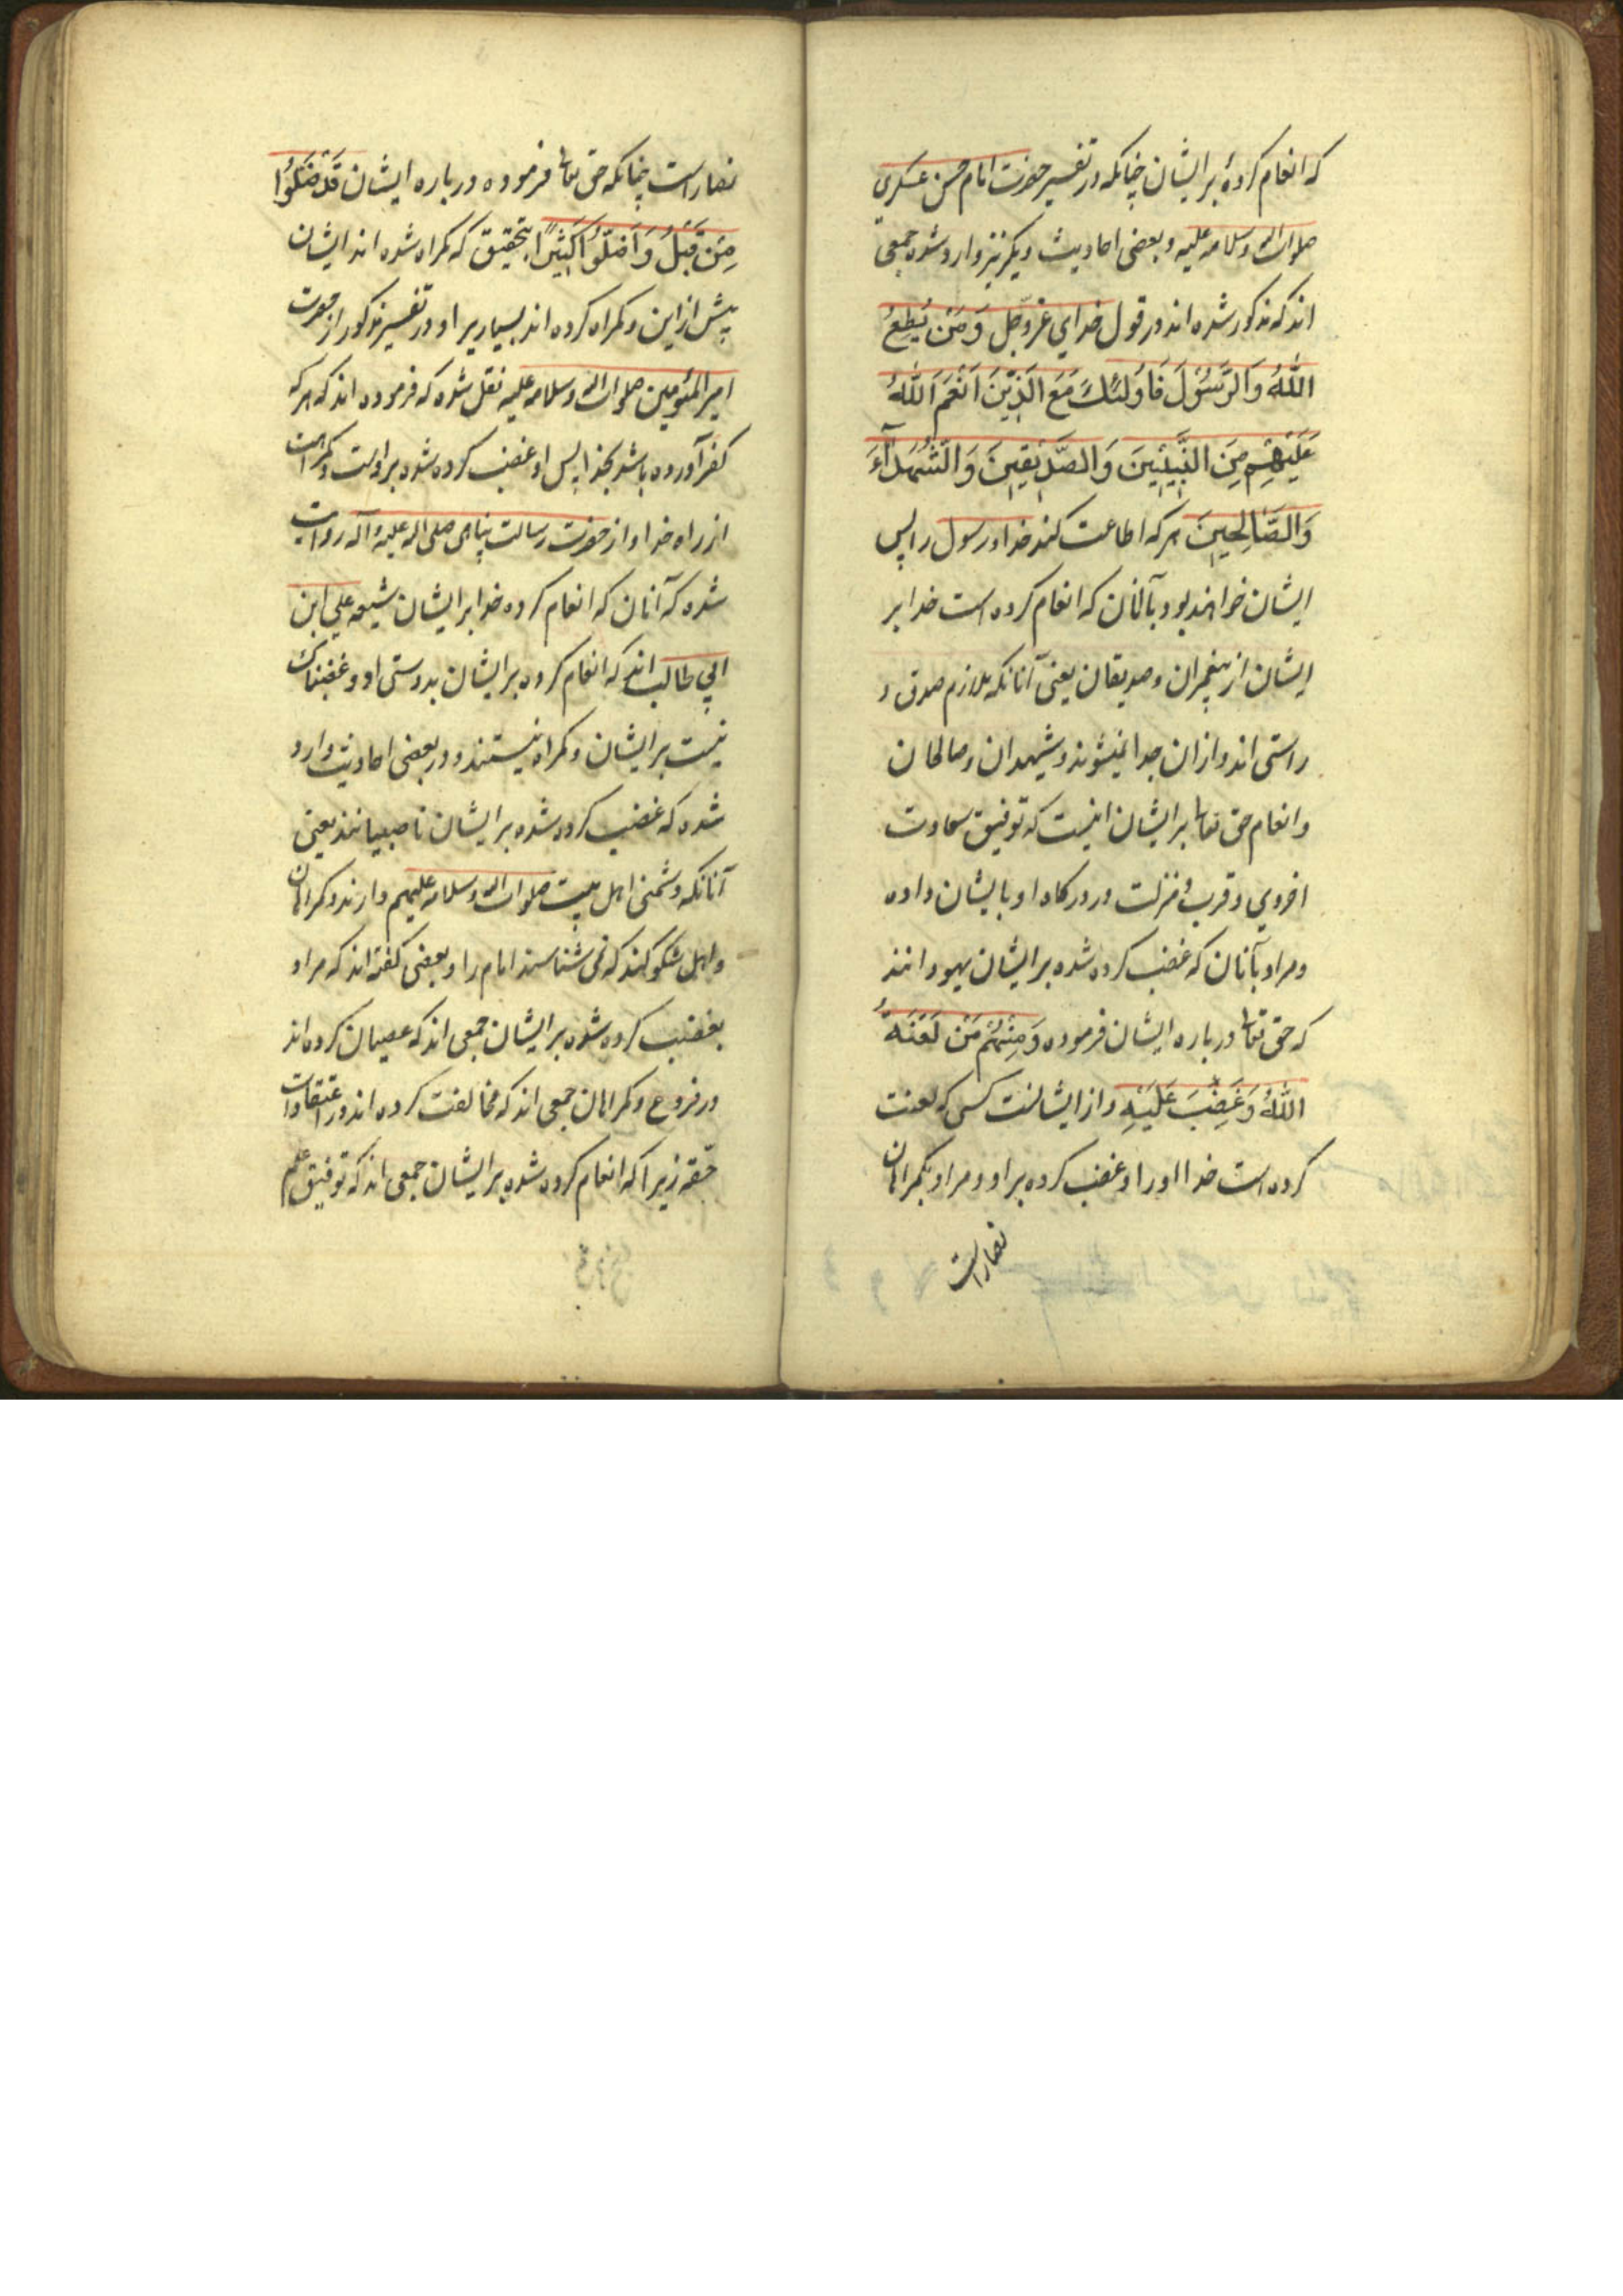 که انعام کردهٔ بر ایشان چنانکه در تفسیر حضرت امام حسن عسکری
صلوات الله و سلامه علیه و بعضی احادیث دیگر نیز وارد شده جمعی
اند که مذکور شده اند در قول خدای عزّ و جل وَمَنْ يُطِعِ
اللّٰهَ وَالرَّسُوْلَ فَاُولٰئِكَ مَعَ الَّذِيْنَ اَنْعَمَ اللّٰهُ
عَلَيْهِمْ مِنَ النَّبِيِّينَ وَالصِّدِّيقِينَ وَالشُّهَدَآءِ
وَالصَّالِحِينَ هر که اطاعت کند خدا و رسول را پس
ایشان خواهند بود با آنان که انعام کرده است خدا بر
ایشان از پیغمبران و صدیقان یعنی آنانکه ملازم صدق و
راستی اند و از ان جدا نمیشوند و شهیدان و صالحان
و انعام حق تعالی بر ایشان اینست که توفیق سعادت
اخروی و قرب و منزلت در درکاه او بایشان داده
و مراد بآنان که غضب کرده شده بر ایشان یهودانند
که حق تعالی در باره ایشان فرموده وَمِنْهُمْ مَنْ لَعَنَهُ
اللّٰهُ وَغَضِبَ عَلَيْهِ و از ایشانست کسی که لعنت
کرده است خدا او را و غضب کرده بر او و مراد بکمراهان
نصاراست
نصاراست چنانکه حق تعالی فرموده در باره ایشان قَدْ ضَلُّوا
مِنْ قَبْلُ وَاَضَلُّوا كَثِيْرًا بتحقیق که کمراه شده اند ایشان
پیش از این و کمراه کرده اند بسیاری را و در تفسیر مذکور از حضرت
امیر المؤمنین صلوات الله و سلامه علیه نقل شده که فرموده اند که هر که
کفر آورده باشد بخدا پس او غضب کرده شده بر اوست و کمراهست
از راه خدا و از حضرت رسالت پناهی صلی الله علیه و آله روایت
شده که آنان که انعام کرده خدا بر ایشان شیعه علی ابن
ابی طالب اند که انعام کرده بر ایشان بدوستی او و غضبناک
نیست بر ایشان و کمراه نیستند و در بعضی احادیث وارد
شده که غضب کرده شده بر ایشان ناصبیانند یعنی
آنانکه دشمنی اهل بیت صلوات الله و سلامه علیهم دارند و کمراهان
و اهل شکوکند که نمی شناسند امام را و بعضی کفته اند که مراد
بغضب کرده شده بر ایشان جمعی اند که عصیان کرده اند
در فروع و کمراهان جمعی اند که مخالفت کرده اند در اعتقادات
حقه زیرا که انعام کرده شده بر ایشان جمعی اند که توفیق علم